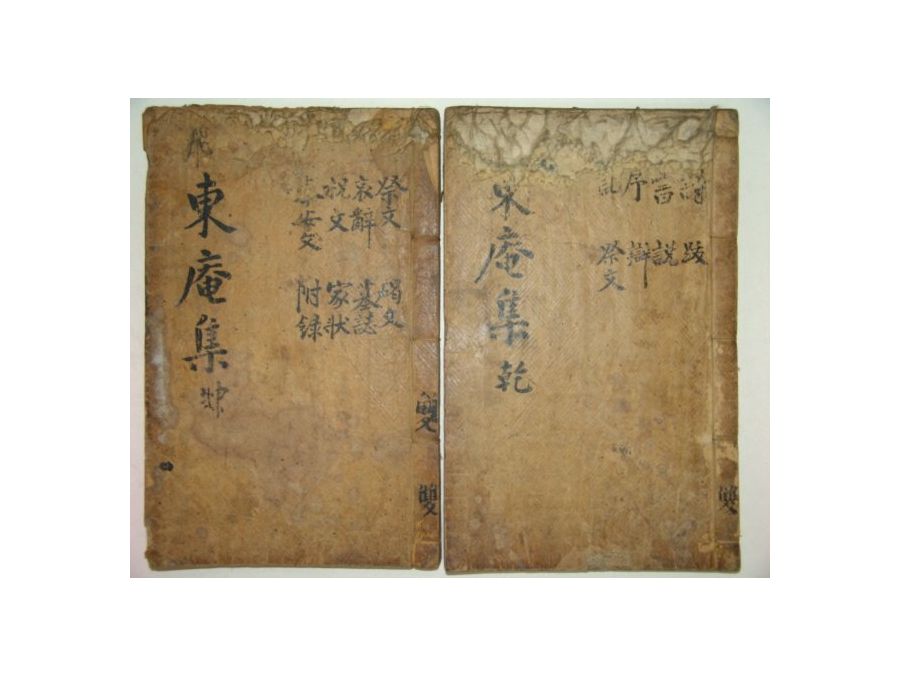 雙
詩 跋
書 說
序 辯
記 祭文
東庵集 乾
雙
雙
祭文 碣文
哀辭 墓誌
祝文 家狀
奉安文 附錄
東庵集 坤